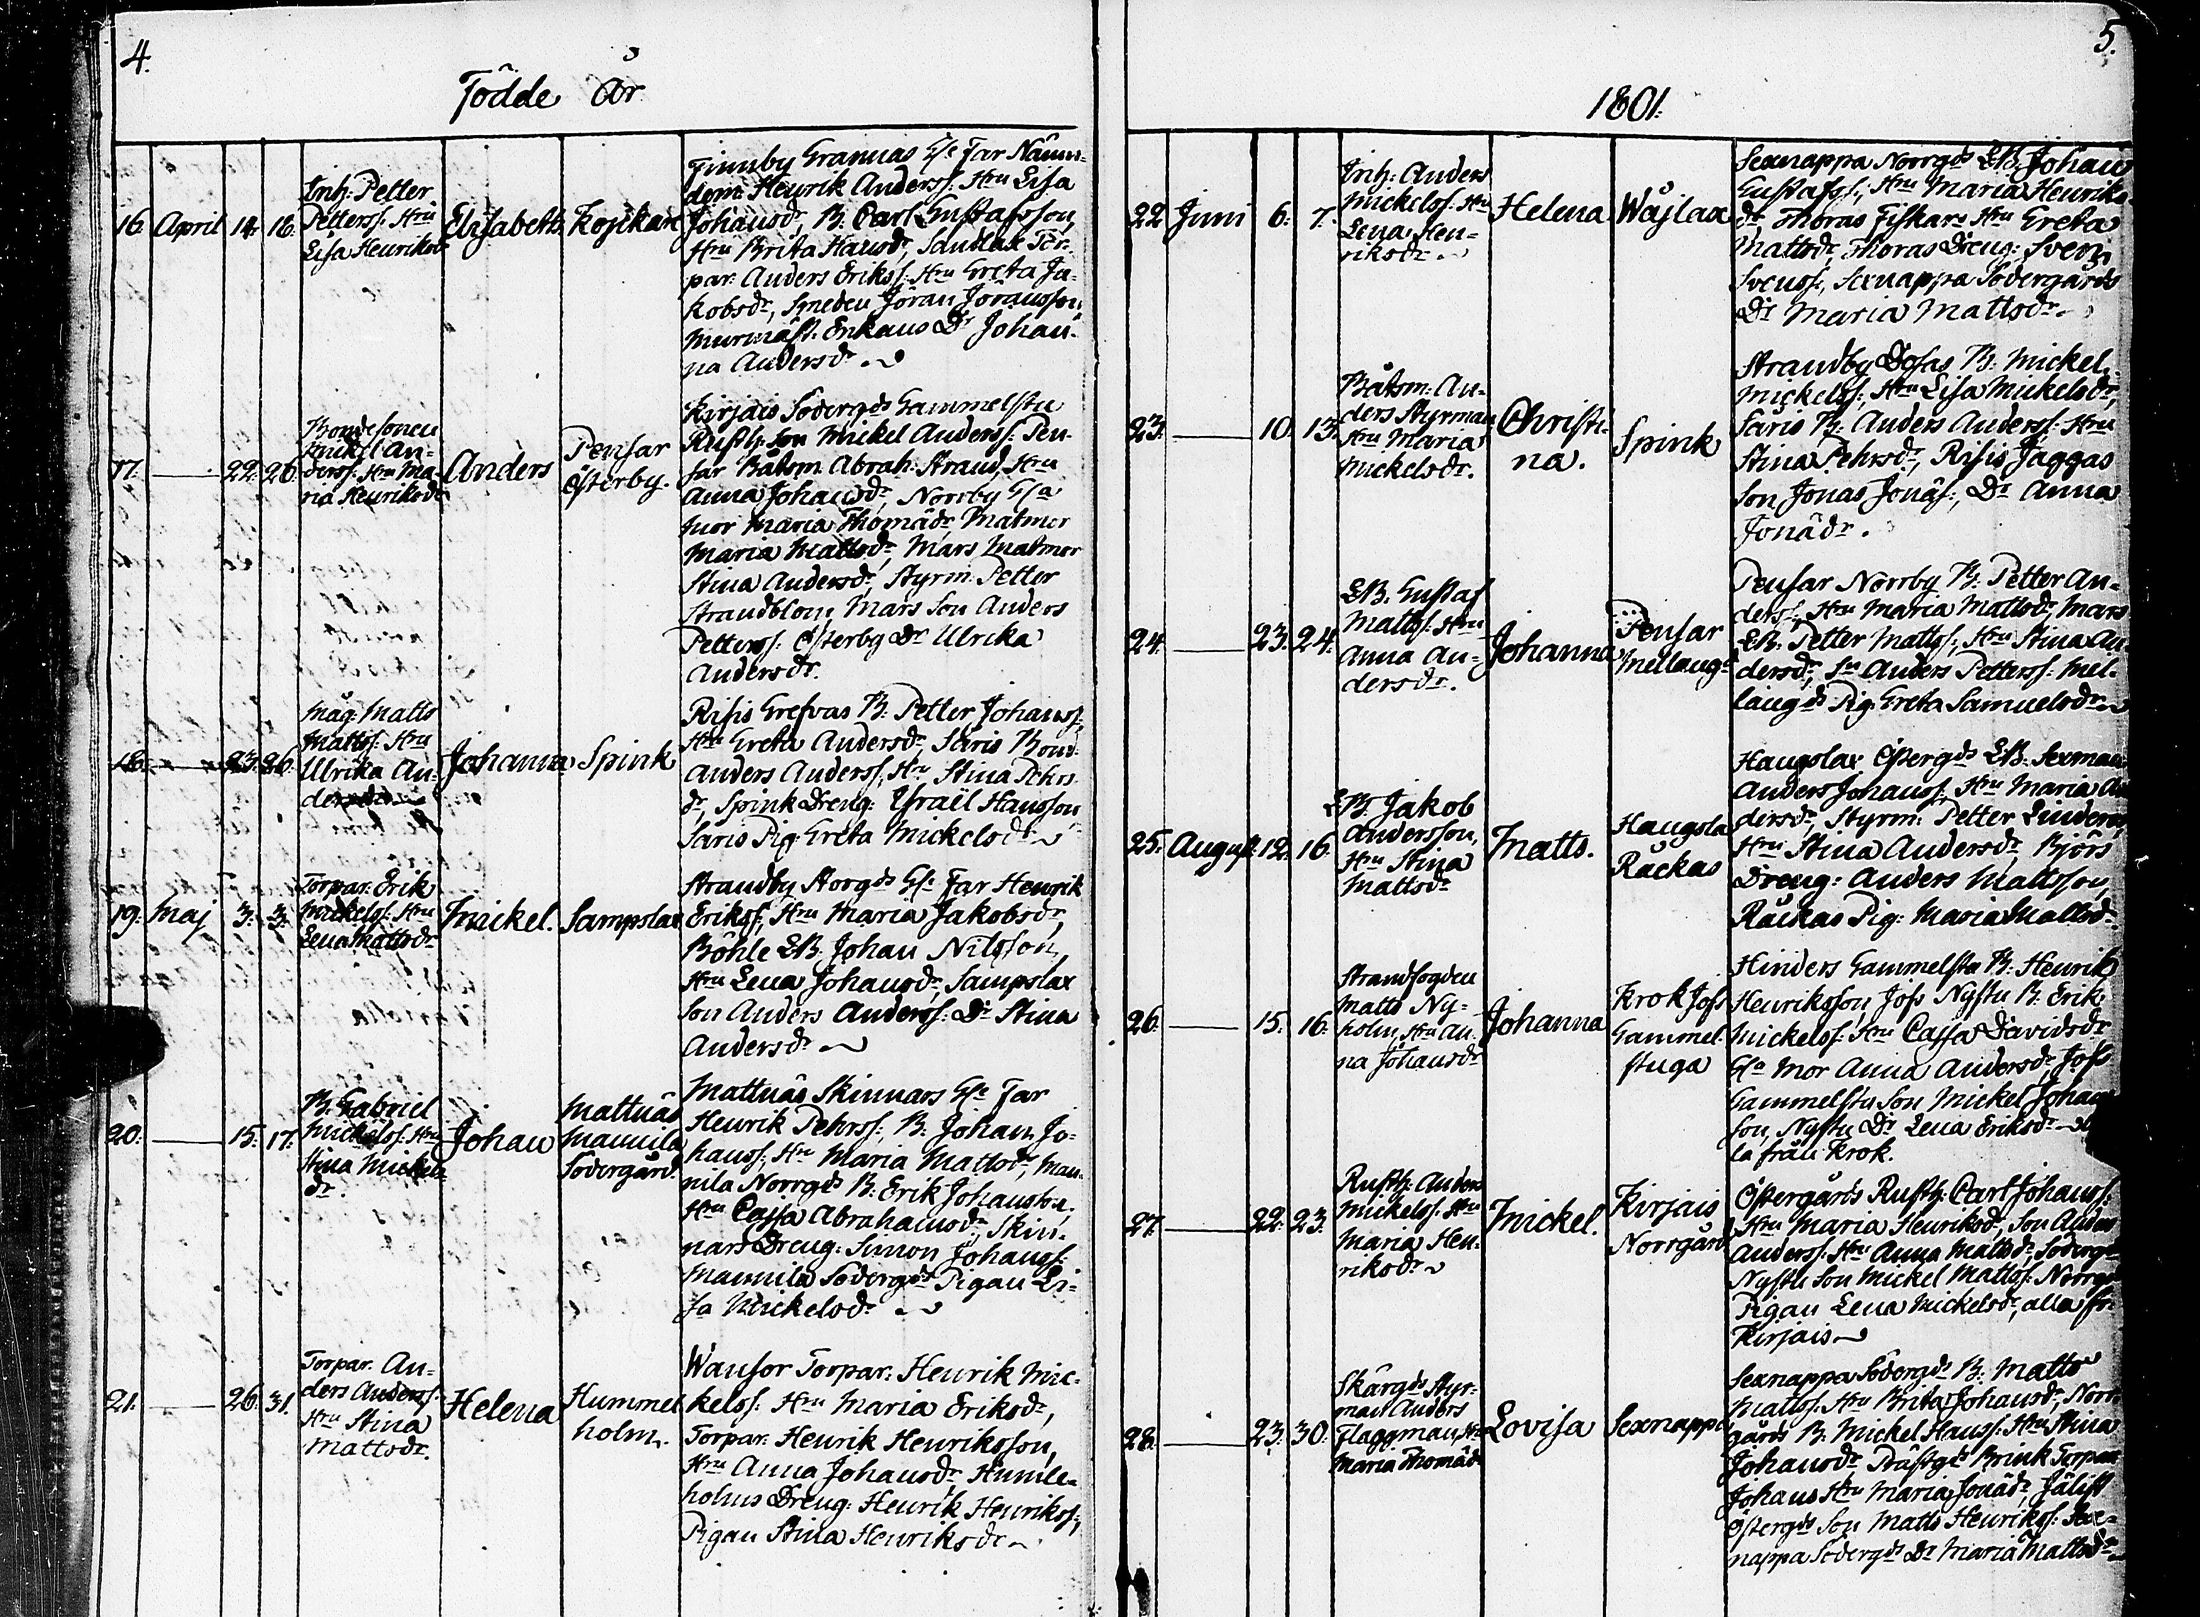 4.
Födde År
16. April 14. 18.
Inh: Petter
Petterss: Hru
Lisa Henriksdr
Elisabeth Kojkar
Finnby Grannas Gle Far Nämn-
dem: Henrik Anderss: Hru Lisa
Johansdr, B. Carl Gustafsson,
Hru Brita Hansdr, Sandlax Tor-
par: Anders Erikss: Hru Greta Ja-
kobsdr, Smeden Jöran Jöransson,
Murmäst: Enkans Dr Johan-
na Andersdr.
17. 22. 26.
Bondesonen
Mickel An-
derss: Hru Ma-
ria Henriksdr
Anders
Pensar
Österby.
Kirjais Södergds Gammelstu
Rusth: Son Mickel Anderss: Pen-
sar Båtsm. Abrah: Strand, Hru
Anna Johansdr, Norrby Gla
Mor Maria Thomädr Matmor
Maria Mattsdr, Mars Matmor
Stina Andersdr, Styrm: Petter
Strandblom, Mars Son Anders
Petterss: Österby Dr Ulrika
Andersdr.
18. 23. 26.
Måg: Matts
Mattss: Hru
Ulrika An-
dersdr
Johanna Spink
Risis Grefvas B. Petter Johanss,
Hru Greta Andersdr, Saris Bond:
Anders Anderss, Hru Stina Pehrs
dr, Spink Dreng: Israël Hansson
Saris Pig: Greta Mickelsdr
19. Maj 3. 3.
Torpar: Erik
Mickelss: Hru
Lena Mattsdr
Mickel. Sampslax
Strandby Storgds Gle Far Henrik
Erikss, Hru Maria Jakobsdr,
Böhle LB. Johan Nilsson,
Hru Lena Johansdr, Sampslax
Son Anders Anderss: Dr Stina
Andersdr
20. 15. 17.
B. Gabriel
Mickelss: Hru
Stina Mickels-
dr.
Johan
Mattnäs
Mannila
Södergård.
Mattnäs Skinnars Gle Far
Henrik Pehrss:, B. Johan Jo-
hanss:, Hru Maria Mattsdr, Man-
nila Norrgds B. Erik Johansson,
Hru Cajsa Abrahamsdr, Skin-
nars Dreng: Simon Johanss:
Mannila Södergds Pigan Li-
sa Mickelsdr
21. 26. 31.
Torpar. An-
ders Anderss:
Hru Stina
Mattsdr.
Helena
Hummel
holm.
Wansor Torpar: Henrik Mic-
kelss: Hru Maria Eriksdr,
Torpar: Henrik Henriksson,
Hru Anna Johansdr Humle-
holms Dreng: Henrik Henrikss;
Pigan Stina Henriksdr
5.
1801.
22. Juni 6. 7.
Inh: Anders
Mickelss: Hru
Lena Hen-
riksdr
Helena Wäjlax
Sexnappa Norrgds LB. Johan
Gustafss:, Hru Maria Henriks
dr, Thoras Fiskars Hru Greta
Mattsdr, Thoras Dreng: Sven
Svenss:, Sexnappa Södergårds
Dr Maria Mattsdr
23. 10. 13.
Båtsm: An-
ders Styrman
Hru Maria
Mickelsdr.
Christi-
na.
Spink
Strandby Dosas B. Mickel
Mickelss:, Hru Lisa Mickelsdr,
Saris B. Anders Anderss: Hru
Stina Pehrsdr, Risis Jaggas
Son Jonas Jonäs:, Dr Anna
Jonädr.
24. 23. 24.
LB. Gustaf
Mattss: Hru
Anna An-
dersdr.
Johanna
Pensar
Mellangd
Pensar Norrby B. Petter An-
derss:, Hru Maria Mattsdr, Mars
LB. Petter Mattss:, Hru Stina An-
dersdr, Sn Anders Petterss: Mel-
langds Pig: Greta Samuelsdr
25. August 12. 16.
LB. Jakob
Andersson,
Hru Stina
Mattsdr
Matts.
Haugsla
Räckas
Haugslax Östergds LB. Sexman
Anders Johanss:, Hru Maria An
dersdr, Styrm: Petter Linder,
Hru Stina Andersdr, Björs
Dreng: Anders Mattsson,
Räckas Pig: Maria Mattsdr.
26. 15. 16.
Strandfogden
Matts Ny-
holm, Hru An-
na Johansdr
Johanna
Krok Jofs
Gammel-
stuga
Hinders Gammelstu B. Henrik
Henriksson, Jofs Nystu B. Erik
Mickelss: Hru Cajsa Davidsdr
Gla Mor Anna Andersdr, Jofs
Gammelstu Son Mickel Johans
son, Nystu Dr Lena Eriksdr al
la från Krok.
27. 22. 23.
Rusth: Anders
Mickelss: Hru
Maria Hen-
riksdr
Mickel.
Kirjais
Norrgård
Östergårds Rusth: Carl Johanss:
Hru Maria Henriksdr, Son Anders
Anderss: Hru Anna Mattsdr, Södergds
Nystu Son Mickel Mattss: Norrgds
Pigan Lena Mickelsdr, alla fr:
Kirjais
28. 23. 30.
Skärgds Styr-
man Anders
Flaggman, Hru
Maria Thomädr
Lovisa Sexnappa
Sexnappa Södergds B. Matts
Mattss: Hru Brita Johansdr, Norr-
gårds B. Mickel Hanss: Hru Stina
Johansdr Prästgds Brink Torpar
Johans Hru Maria Jonädr, Jälist
Östergds Son Matts Henrikss: Sex-
nappa Södergds Dr Maria Mattsdr